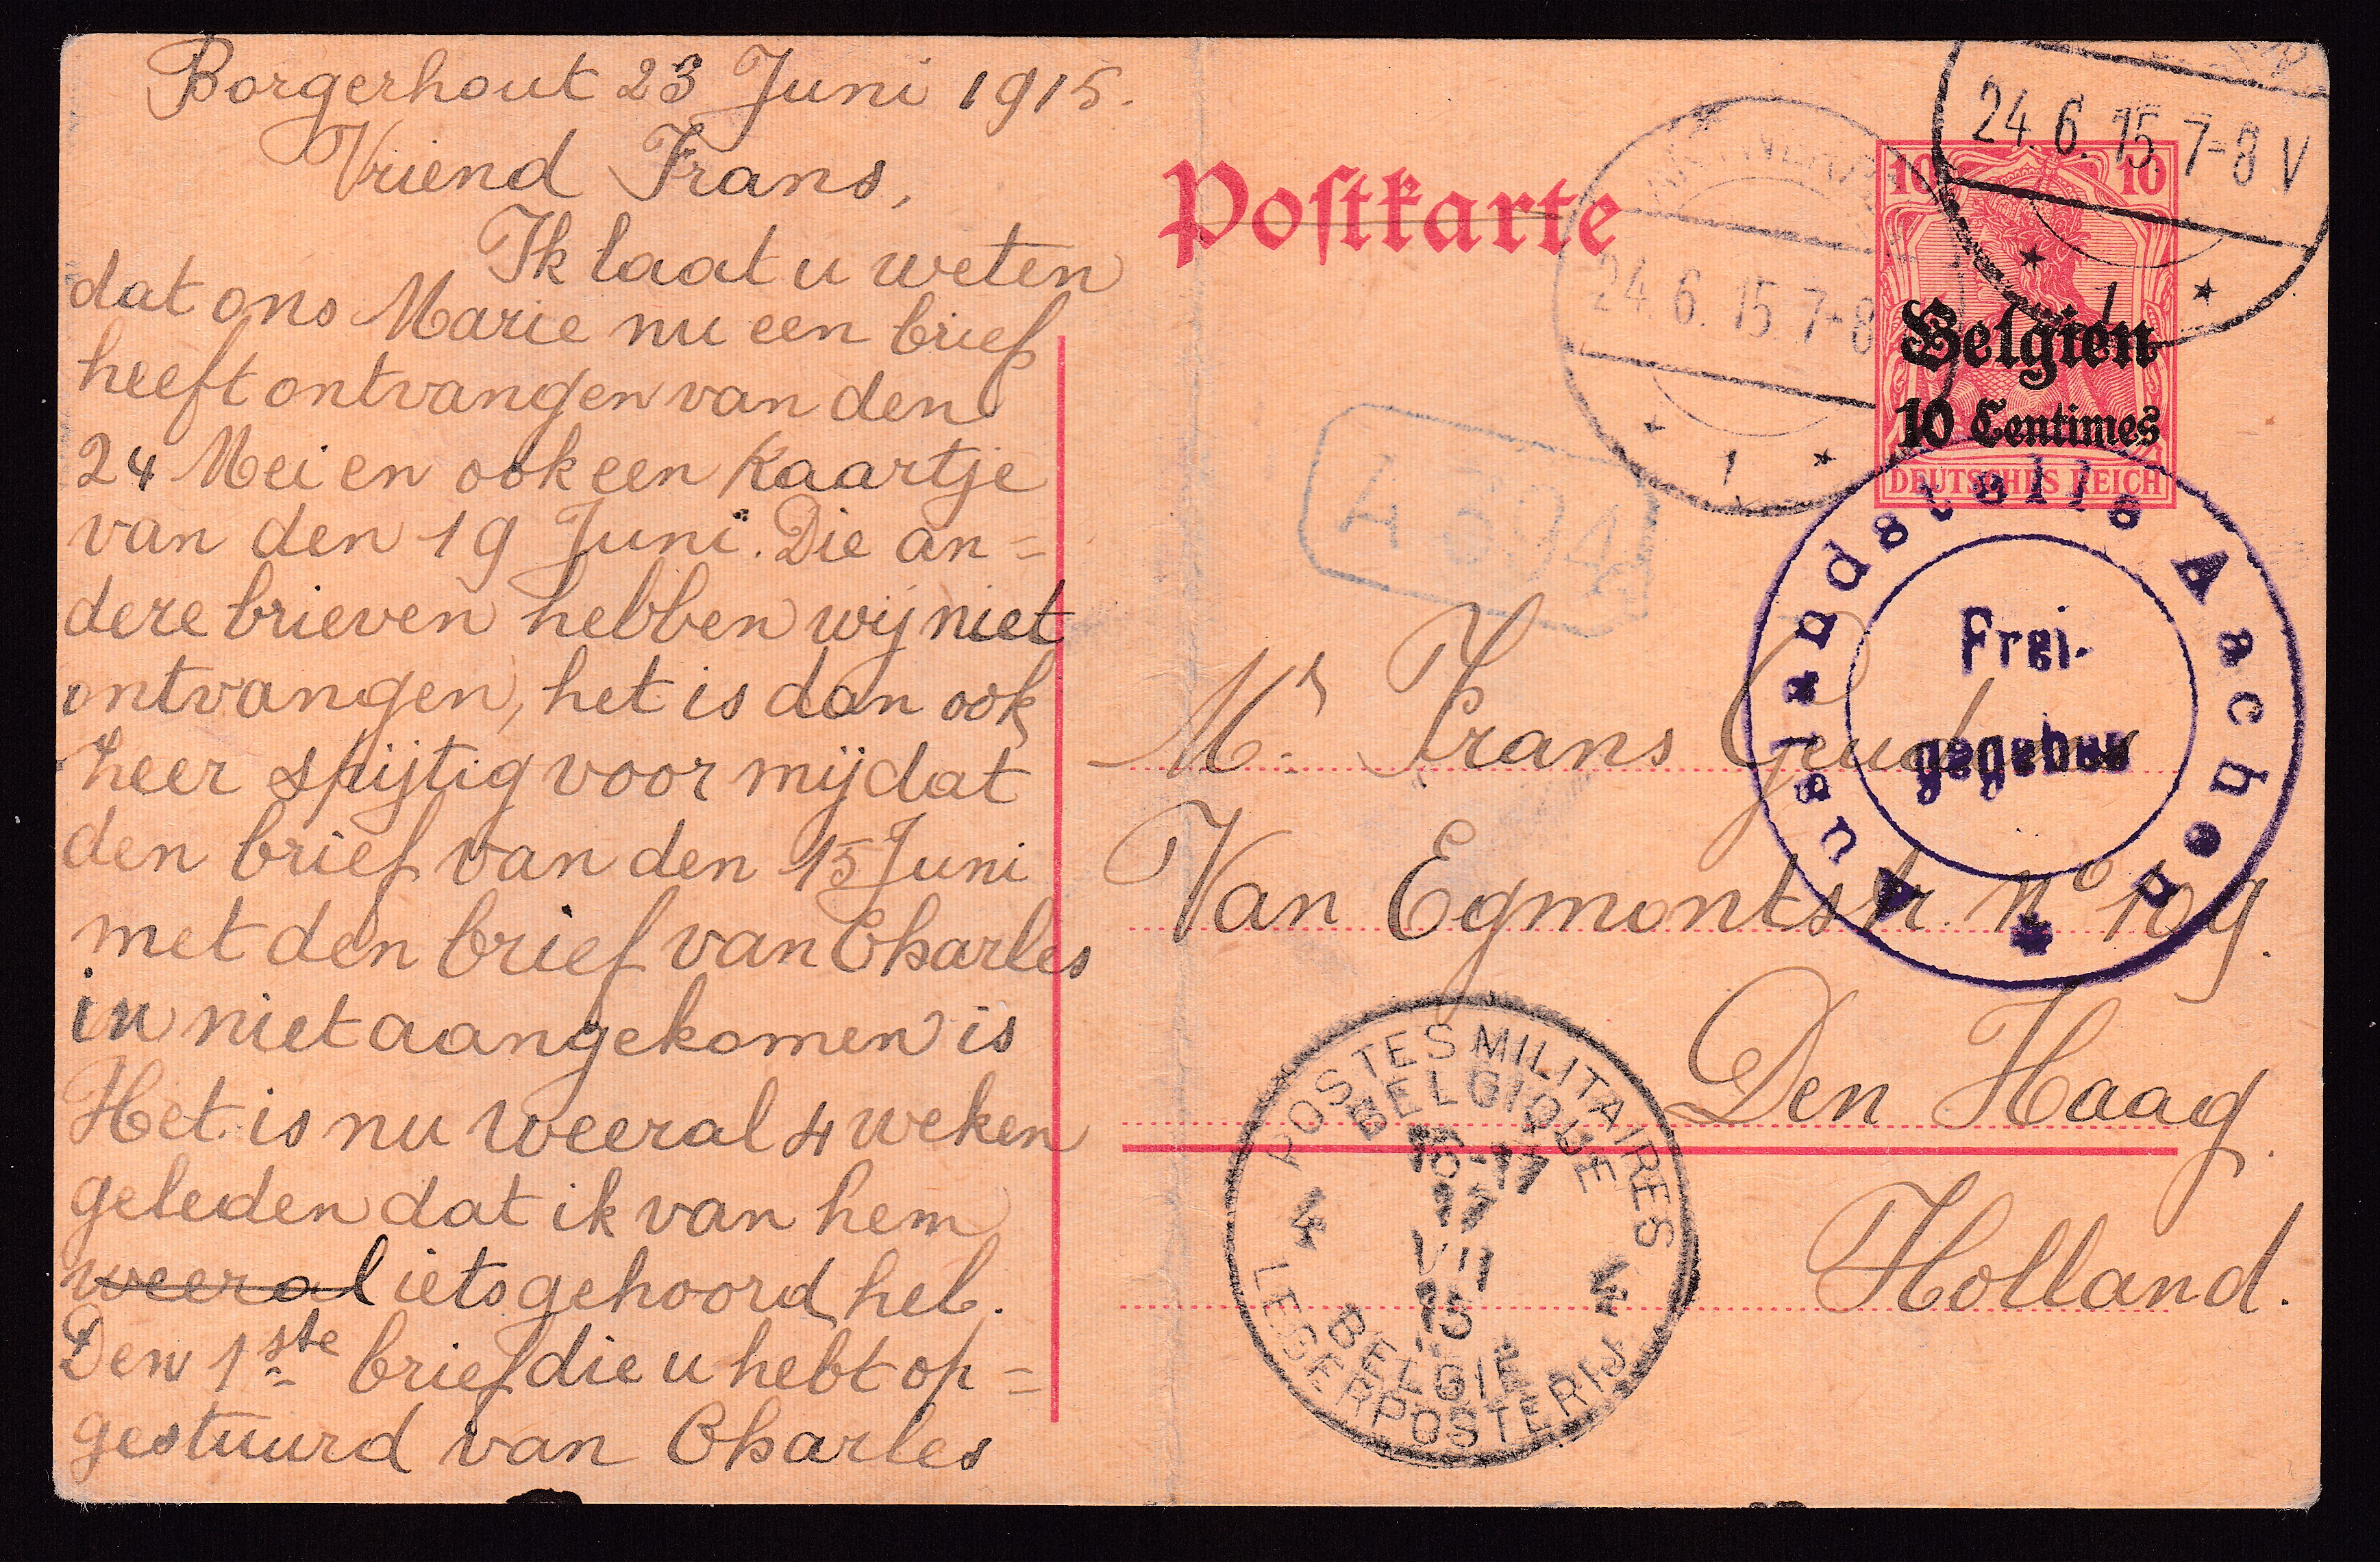 Borgerhout 23 Juni 1915.
Vriend Frans,
Ik laat u weten
dat ons Marie nu een brief
heeft ontvangen van den
24 Mei en ook een kaartje
van den 19 Juni. Die an=
dere brieven hebben wij niet
ontvangen, het is dan ook
heer spijtig voor mij dat
den brief van den 15 Juni
met den brief van Charles
in niet aangekomen is
Het is nu weeral 4 weken
geleden dat ik van hem
weeral iets gehoord heb.
Den 1ste brief die u hebt op=
gestuurd van Charles
Postkarte
10 10
Belgien
10 Centimes
DEUTSCHES REICH
24.6.15.7-8V
1
24.6.15.7-8
1
Auslandstelle Aachen
Frei-
gegeben
Mr. Frans
Van Egmontstr. No 109.
Den Haag.
Holland.
POSTES MILITAIRES
BELGIQUE
16-17
17
VII
15
4 4
BELGIE
LEGERPOSTERIJ